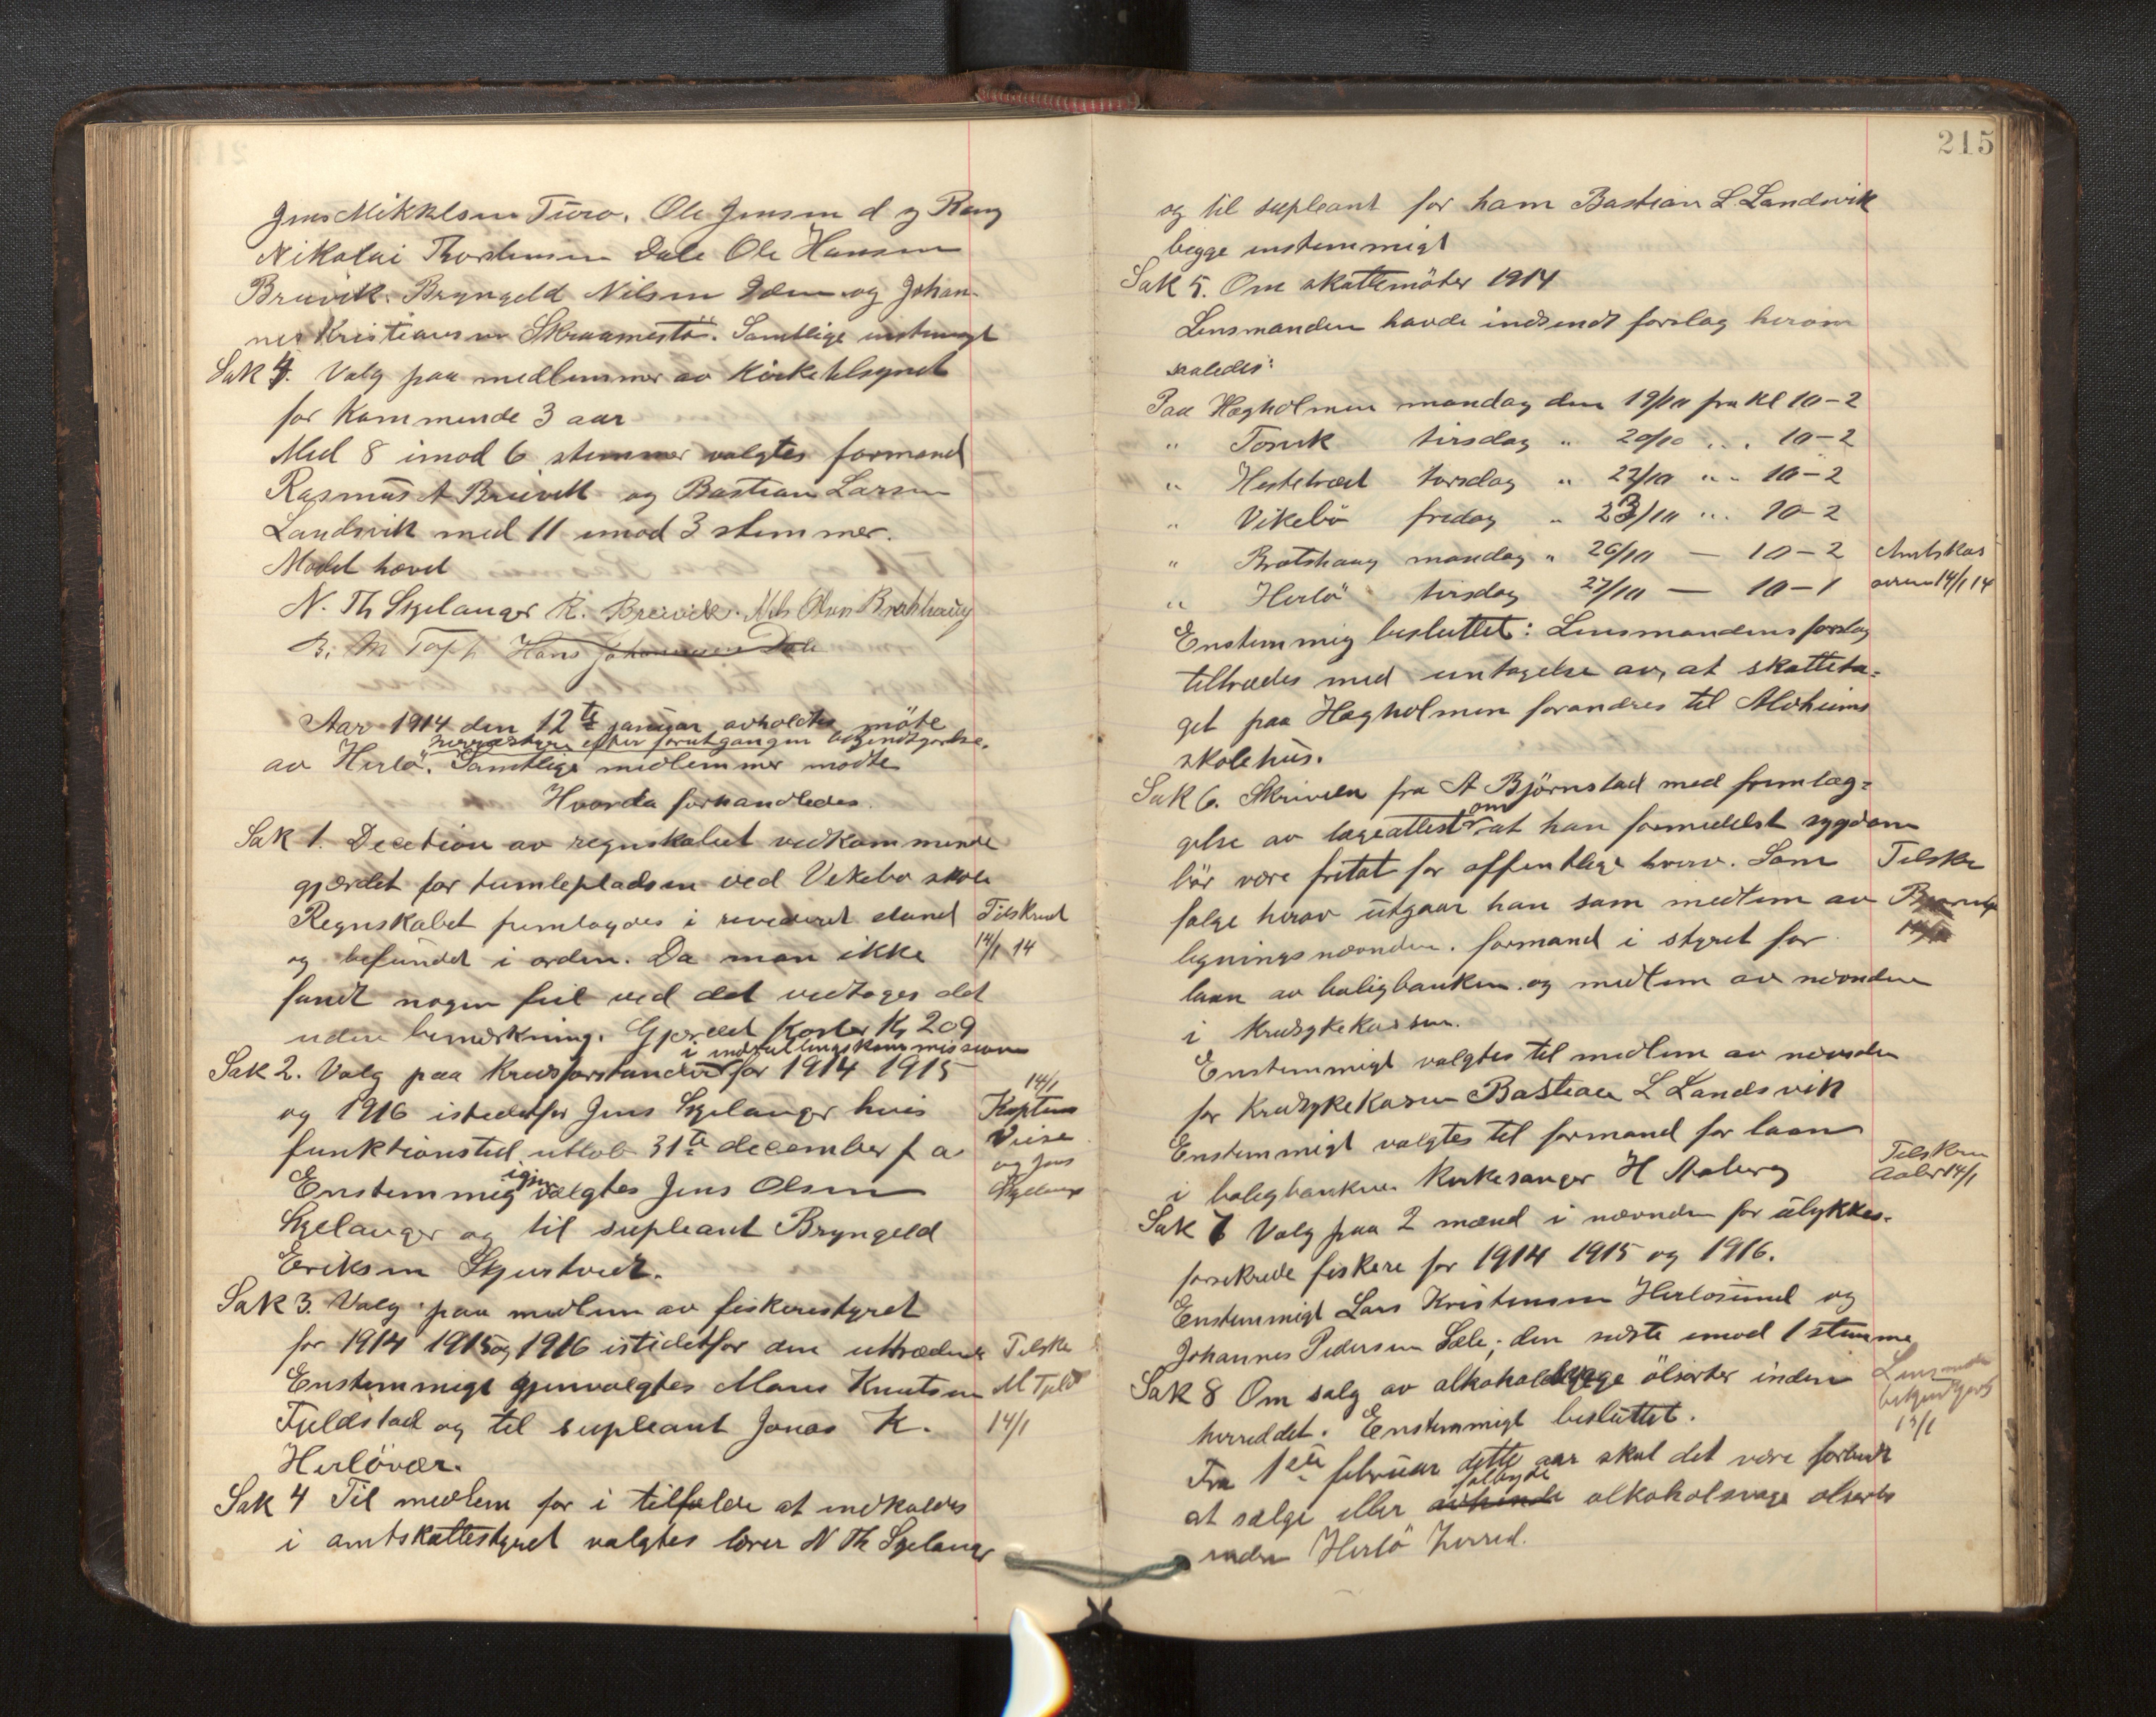 Jens Mikkelsen Turø. Ole Jensen d y
Nikolai Thorstensen Dale Ole Hansen
Breivik. Bryngeld Nilsen og Johan-
nes Kristiansen Skraamestø. Samtlige enstemigt
Sak 4. Valg paa medlemmer av Kirketilsynet
for Kommende 3 aar
Med 8 imod 6 stemmer valgtes formand
Rasmus A Breivik og Bastian Larsen
Landsvik med 11 imod 3 stemmer.
Mødet hævet
N. Th Sgelanger R. Breivik. Nels Olsen Bratshaug
B. M Toft Hans Johannesen Dale
Aar 1914 den 12te januar avholdtes møte
herredstyre efter forutgangen bekjendtgjørelse.
av Herlø. Samtlige medlemmer mødte
Hvorda forhandledes.
Sak 1. Decition av regnskabet vedkommende
gjærdet for tumlepladsen ved Vikebø skole
Regnskabet fremlagdes i revideret stand
og befundet i orden. Da man ikke
fandt nogen feil ved det vedtoges det
uden bemærkning. Gjærdet koster Kr 209
Tilskrevet
14/1 14
i indrulleringskommissionen
Sak 2. Valg paa Kredsforstander for 1914 1915
og 1916 istedetfor Jens Sgelanger hvis
funktionstid utløb 31te december f a
Enstemmig igjen valgtes Jens Olsen
Sgelanger og til supleant Bryngeld
Eriksen Skjestveit.
14/1
Kaptein
og Jens
Sgelanger
Sak 3. Valg paa medlem av fiskeristyret
for 1914 1915 og 1916 istedetfor den uttrædende
Enstemmigt gjenvalgtes Mons Knutsen
Fjeldstad og til supleant Jonas K.
Herløvær.
Tilskr
M Fjeld
14/1
Sak 4 Til medlem for i tilfælde at indkaldes
i amtskattestyret valgtes lærer N Th Sgelanger
215
og til supleant for ham Bastian L Landsvik
begge enstemmigt
Sak 5. Om skattemøter 1914
Lensmanden havde indsendt forslag herom
saaledes:
Paa Hagholmen mandag den 19/10 fra kl 10-2
" Torsvik tirsdag " 20/10 " " 10-2
" Hestetræet torsdag " 22/10 " " 10-2
" Vikebø fredag " 23/10 " " 10-2
" Bratshaug mandag " 26/10 — 10-2
" Herlø tirsdag 27/10 — 10-1
Amtskas
sereren 14/1 14
Enstemmig besluttet: Lensmandens forslag
tiltrædes med untagelse av, at skatteta-
get paa Hagholmen forandres til Alvheims
skolehus.
Sak 6. Skrivelse fra A Bjørnstad med fremlæg-
gelse av lægeattest om at han formedelst sygdom
bør være fritat for offentlige hverv. Som
følge herav utgaar han som medlem av
ligningsnævnden. formand i styret for
laan av boligbanken og medlem av nævnden
i Kredsykekassen.
Tilskr
Enstemmigt valgtes til medlem av nævnden
for Kredsykekassen Bastian L Landsvik
Enstemmigt valgtes til formand for laan
i boligbanken Kirkesanger H Aaberg
Tilskrev
Aaber 14/1
Sak 7 Valg paa 2 mænd i nævnden for ulykkes-
forsikrede fiskere for 1914 1915 og 1916.
Enstemmigt Lars Kristensen Herløsund og
Johannes Pedersen Sæle; den sidste imod 1 stemme
Sak 8 Om salg av alkoholsvage ølsorter inden
herredet. Enstemmigt besluttet.
Fra 1ste februar dette aar skal det være forbudt
at sælge eller falbyde alkoholsvage ølsorter
inden Herlø herred.
Lensmanden
bekjendtgjort
13/1